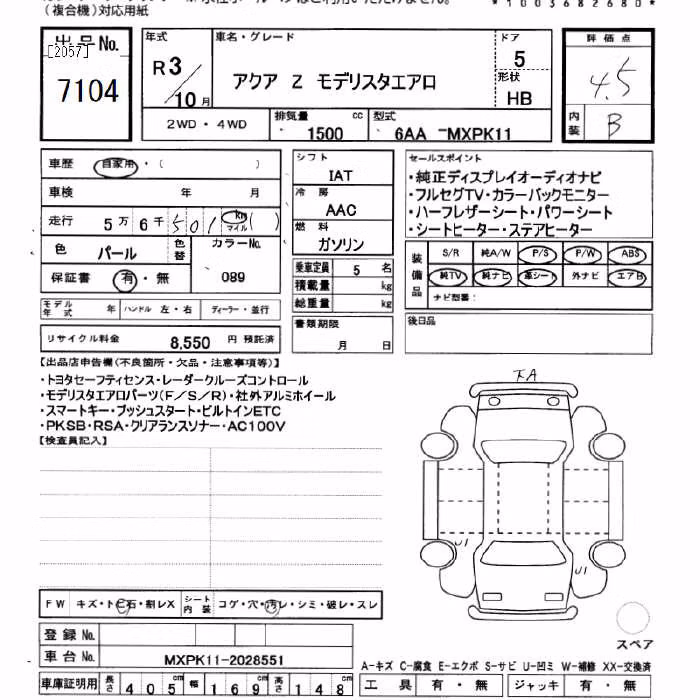 (複合機)対応用紙
*1003682680*
出品No.
[2057]
7104
年式
R3/10月
車名・グレード
アクア Z モデリスタエアロ
ドア
5
形状
HB
2WD・4WD
排気量
1500 cc
型式
6AA -MXPK11
評価点
4.5
内装
B
車歴 自家用・( )
車検 年 月
走行 5万6千501 (km マイル)
色 パール
色替
カラーNo.
089
保証書 有・無
モデル年式 年
ハンドル 左・右
ディーラー・並行
リサイクル料金 8,550 円 預託済
シフト
IAT
冷房
AAC
燃料
ガソリン
乗車定員 5 名
積載量 kg
総重量 kg
書類期限
月 日
セールスポイント
・純正ディスプレイオーディオナビ
・フルセグTV・カラーバックモニター
・ハーフレザーシート・パワーシート
・シートヒーター・ステアヒーター
装備品
S/R 純A/W P/S P/W ABS
純TV 純ナビ 革シート 外ナビ エアB
ナビ型番:
後日品
【出品店申告欄(不良箇所・欠品・注意事項等)】
・トヨタセーフティセンス・レーダークルーズコントロール
・モデリスタエアロパーツ(F/S/R)・社外アルミホイール
・スマートキー・プッシュスタート・ビルトインETC
・PKSB・RSA・クリアランスソナー・AC100V
【検査員記入】
下A
U1
U1
FW キズ・トビ石・割レX
シート内装 コゲ・穴・汚レ・シミ・破レ・スレ
登録No.
車台No. MXPK11-2028551
スペア
A-キズ C-腐食 E-エクボ S-サビ U-凹ミ W-補修 XX-交換済
車庫証明用 長さ 405cm 幅 169cm 高さ 148cm
工具 有・無 ジャッキ 有・無